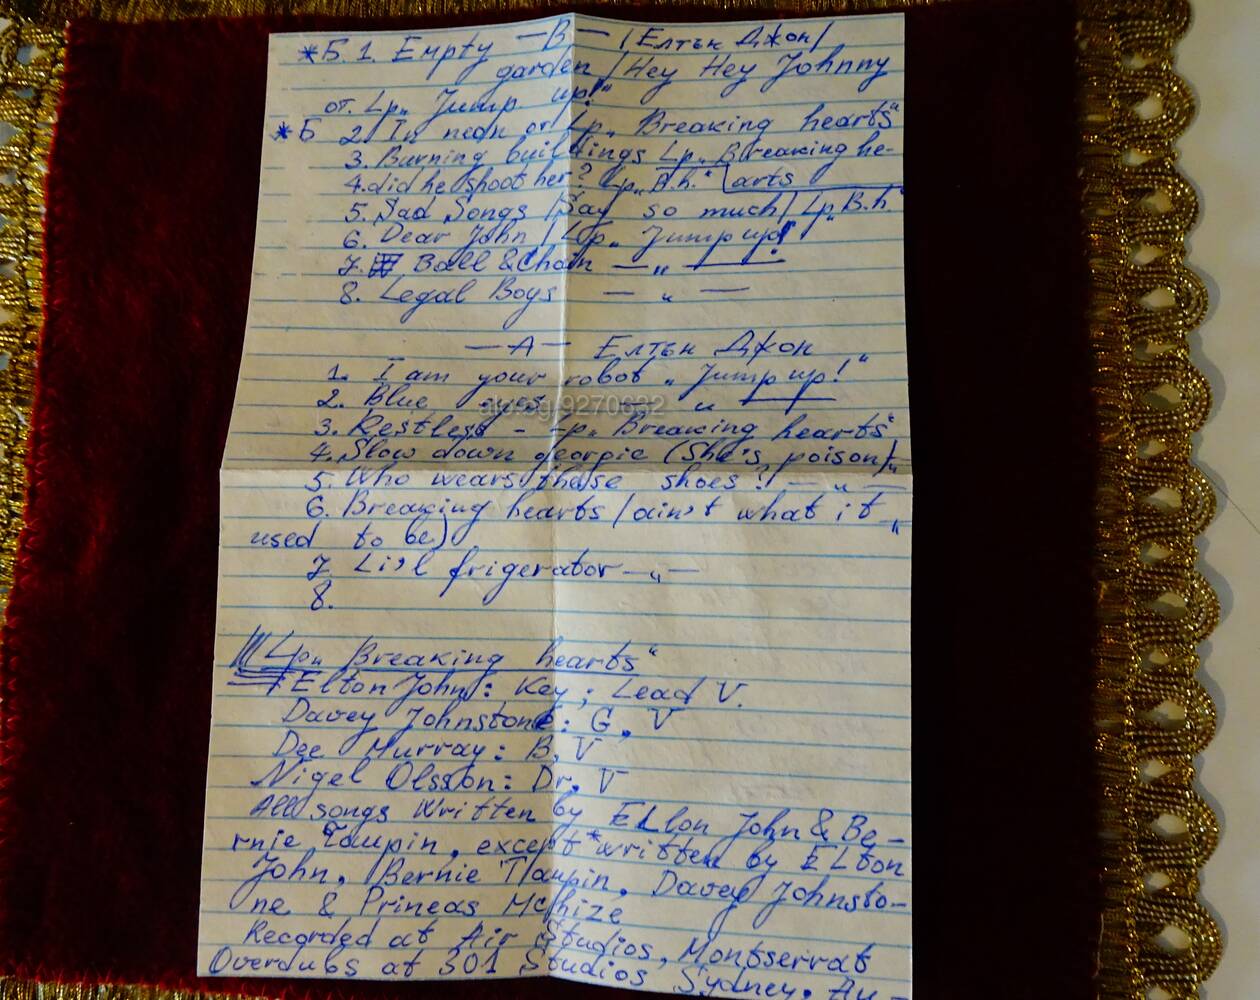 — В — /Елтън Джон/
*Б. 1. Empty garden /Hey Hey Johnny
от. Lp„ Jump up!"
*Б 2/ In neon or Lp„ Breaking hearts"
3. Burning buildings Lp„ Breaking he-
4. did he shoot her? Lp„ B.h." arts
5. Sad Songs /Say so much/ Lp„ B.h."
6. Dear John / Lp„ Jump up!"
7. Ball & Chain — „ —
8. Legal Boys — „ —
— А — Елтън Джон
1. I am your robot „ Jump up!"
2. Blue eyes — „ —
3. Restless - Lp„ Breaking hearts"
4. Slow down georgie (She's poison) „
5. Who wears these shoes? — „ —
6. Breaking hearts /ain't what it „
used to be)
7. Li'l frigerator — „ —
8.
Lp„ Breaking hearts"
Elton John: Key; Lead V.
Davey Johnstone: G, V
Dee Murray: B, V
Nigel Olsson: Dr. V
All songs written by Elton John & Be-
rnie Taupin, except *written by Elton
John, Bernie Taupin, Davey Johnsto-
ne & Prineas McHize
Recorded at Air Studios, Montserrat
Overdubs at 301 Studios Sydney. Au-
alo.bg 9270632